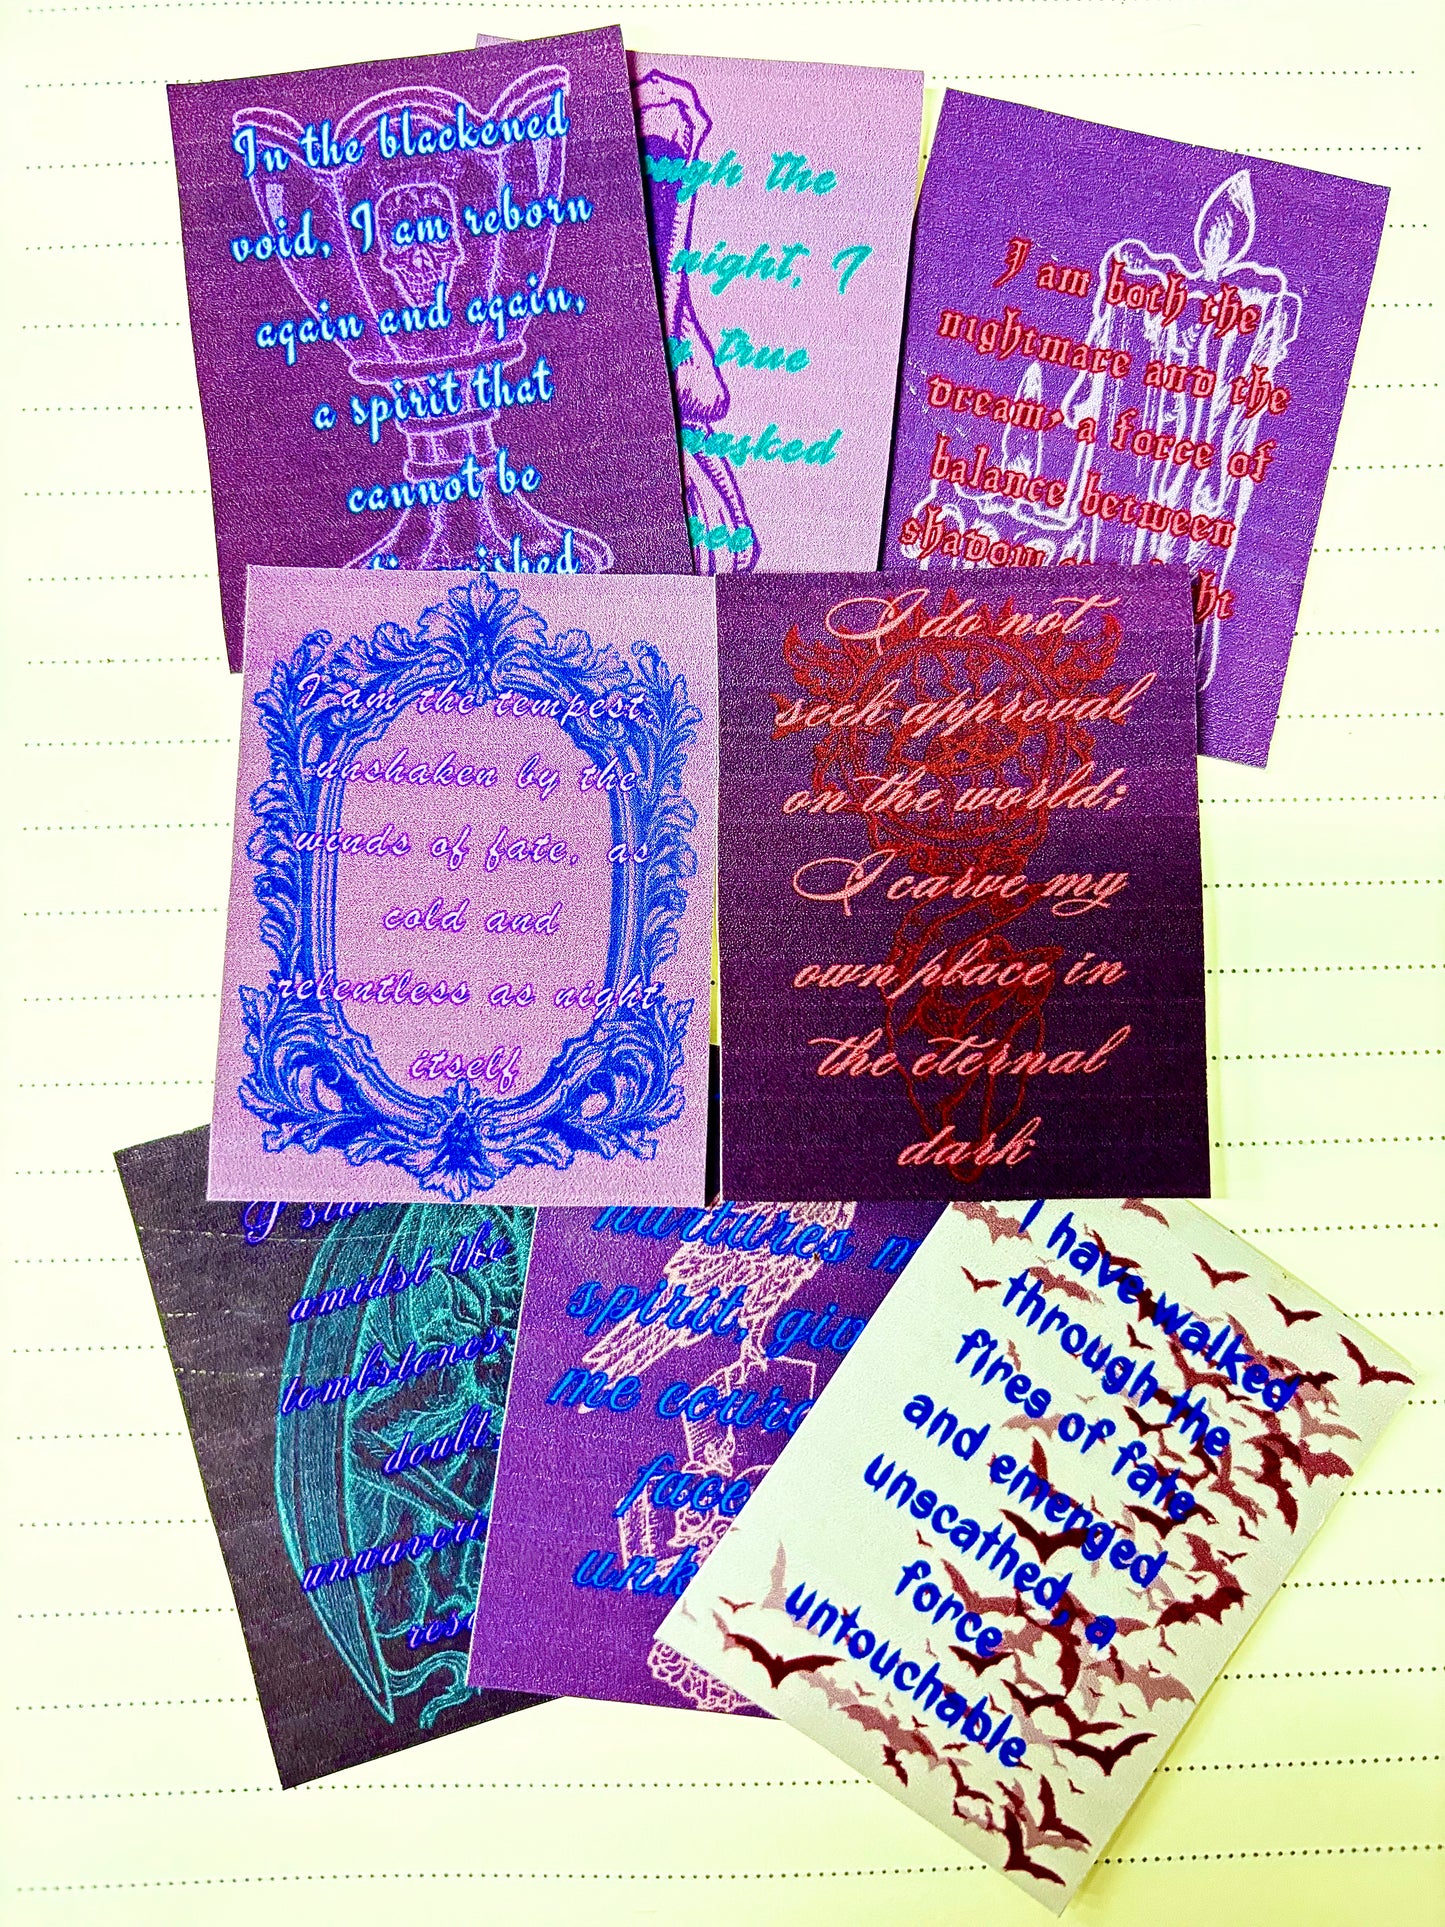 In the blackened
void, I am reborn
again and again,
a spirit that
cannot be
the
night, I
true
I am both the
nightmare and the
dream, a force of
balance between
shadow
I am the tempest,
unshaken by the
winds of fate, as
cold and
relentless as night
itself
I do not
seek approval
on the world;
I carve my
own place in
the eternal
dark
amidst the
tombstones
doubt,
nurtures
spirit,
me
face
I have walked
through the
fires of fate
and emerged
unscathed, a
force
untouchable